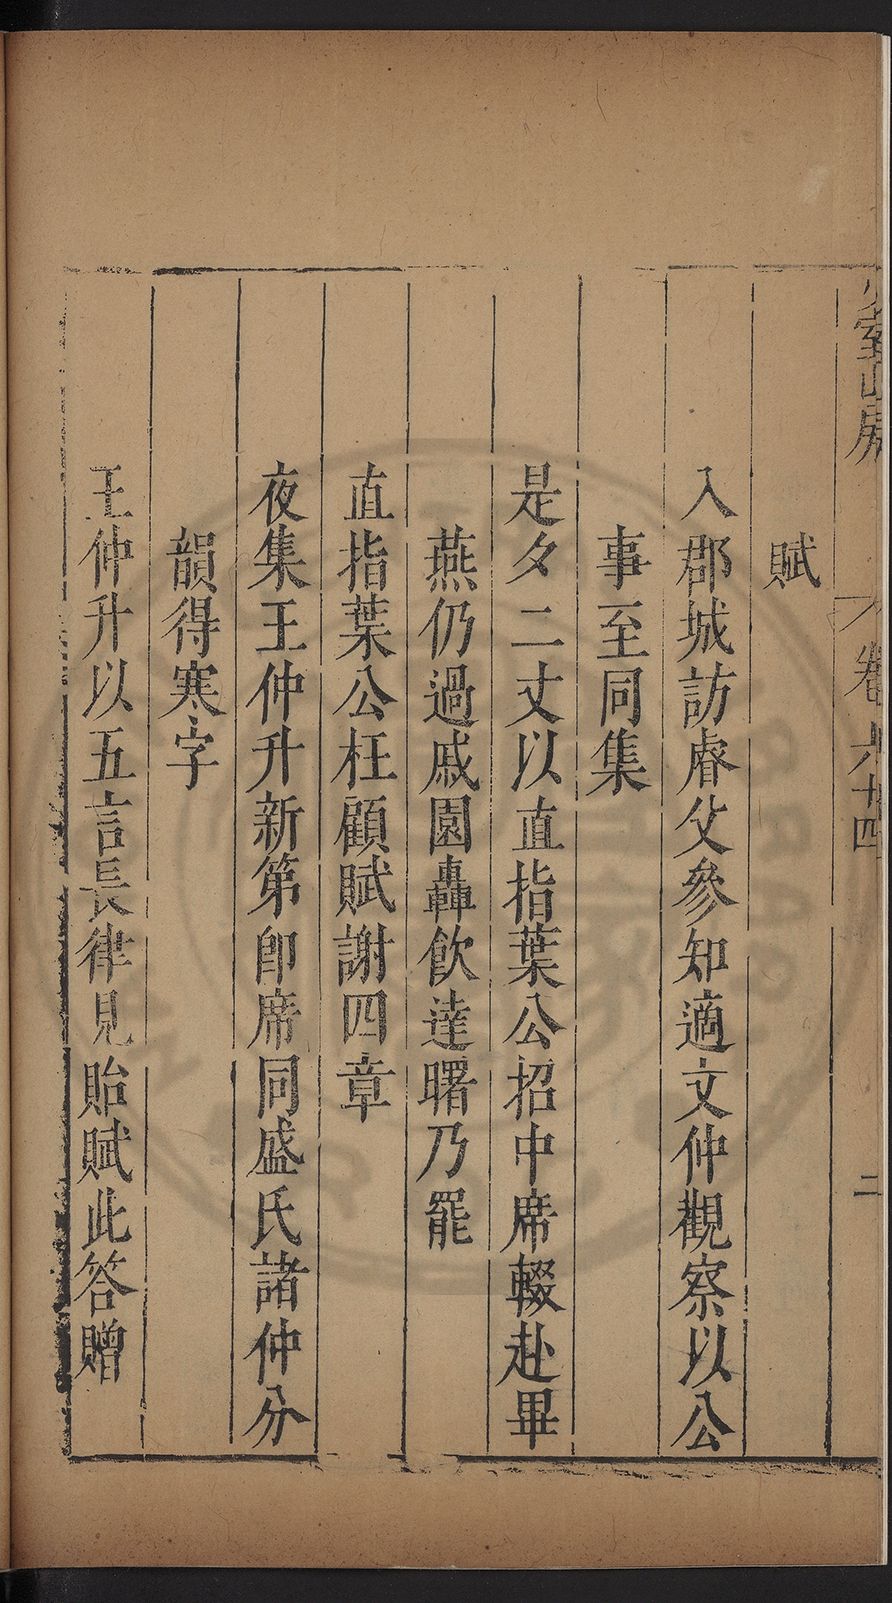 少室山房
卷六十四
二
賦
入郡城訪睿父參知適文仲觀察以公
事至同集
是夕二丈以直指葉公招中席輟赴畢
燕仍過戚園轟飲達曙乃罷
直指葉公枉顧賦謝四章
夜集王仲升新第卽席同盛氏諸仲分
韻得寒字
王仲升以五言長律見貽賦此答贈